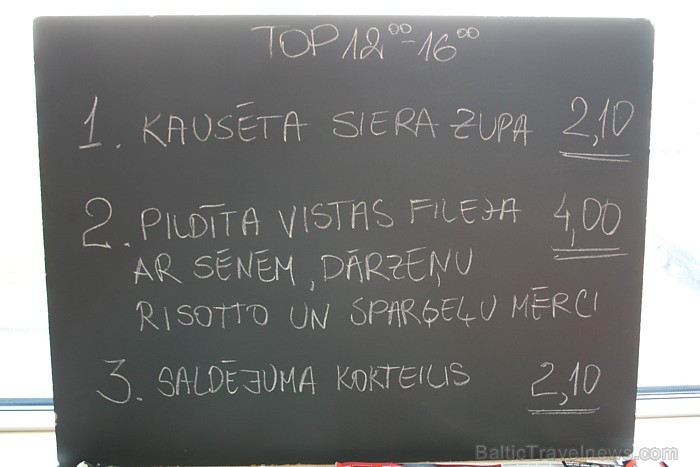 TOP 12⁰⁰-16⁰⁰
1. KAUSĒTA SIERA ZUPA 2,10
2. PILDĪTA VISTAS FILEJA 4,00
AR SĒNĒM, DĀRZEŅU
RISOTTO UN SPARĢEĻU MĒRCI
3. SALDĒJUMA KOKTEILIS 2,10
BalticTravelnews.com